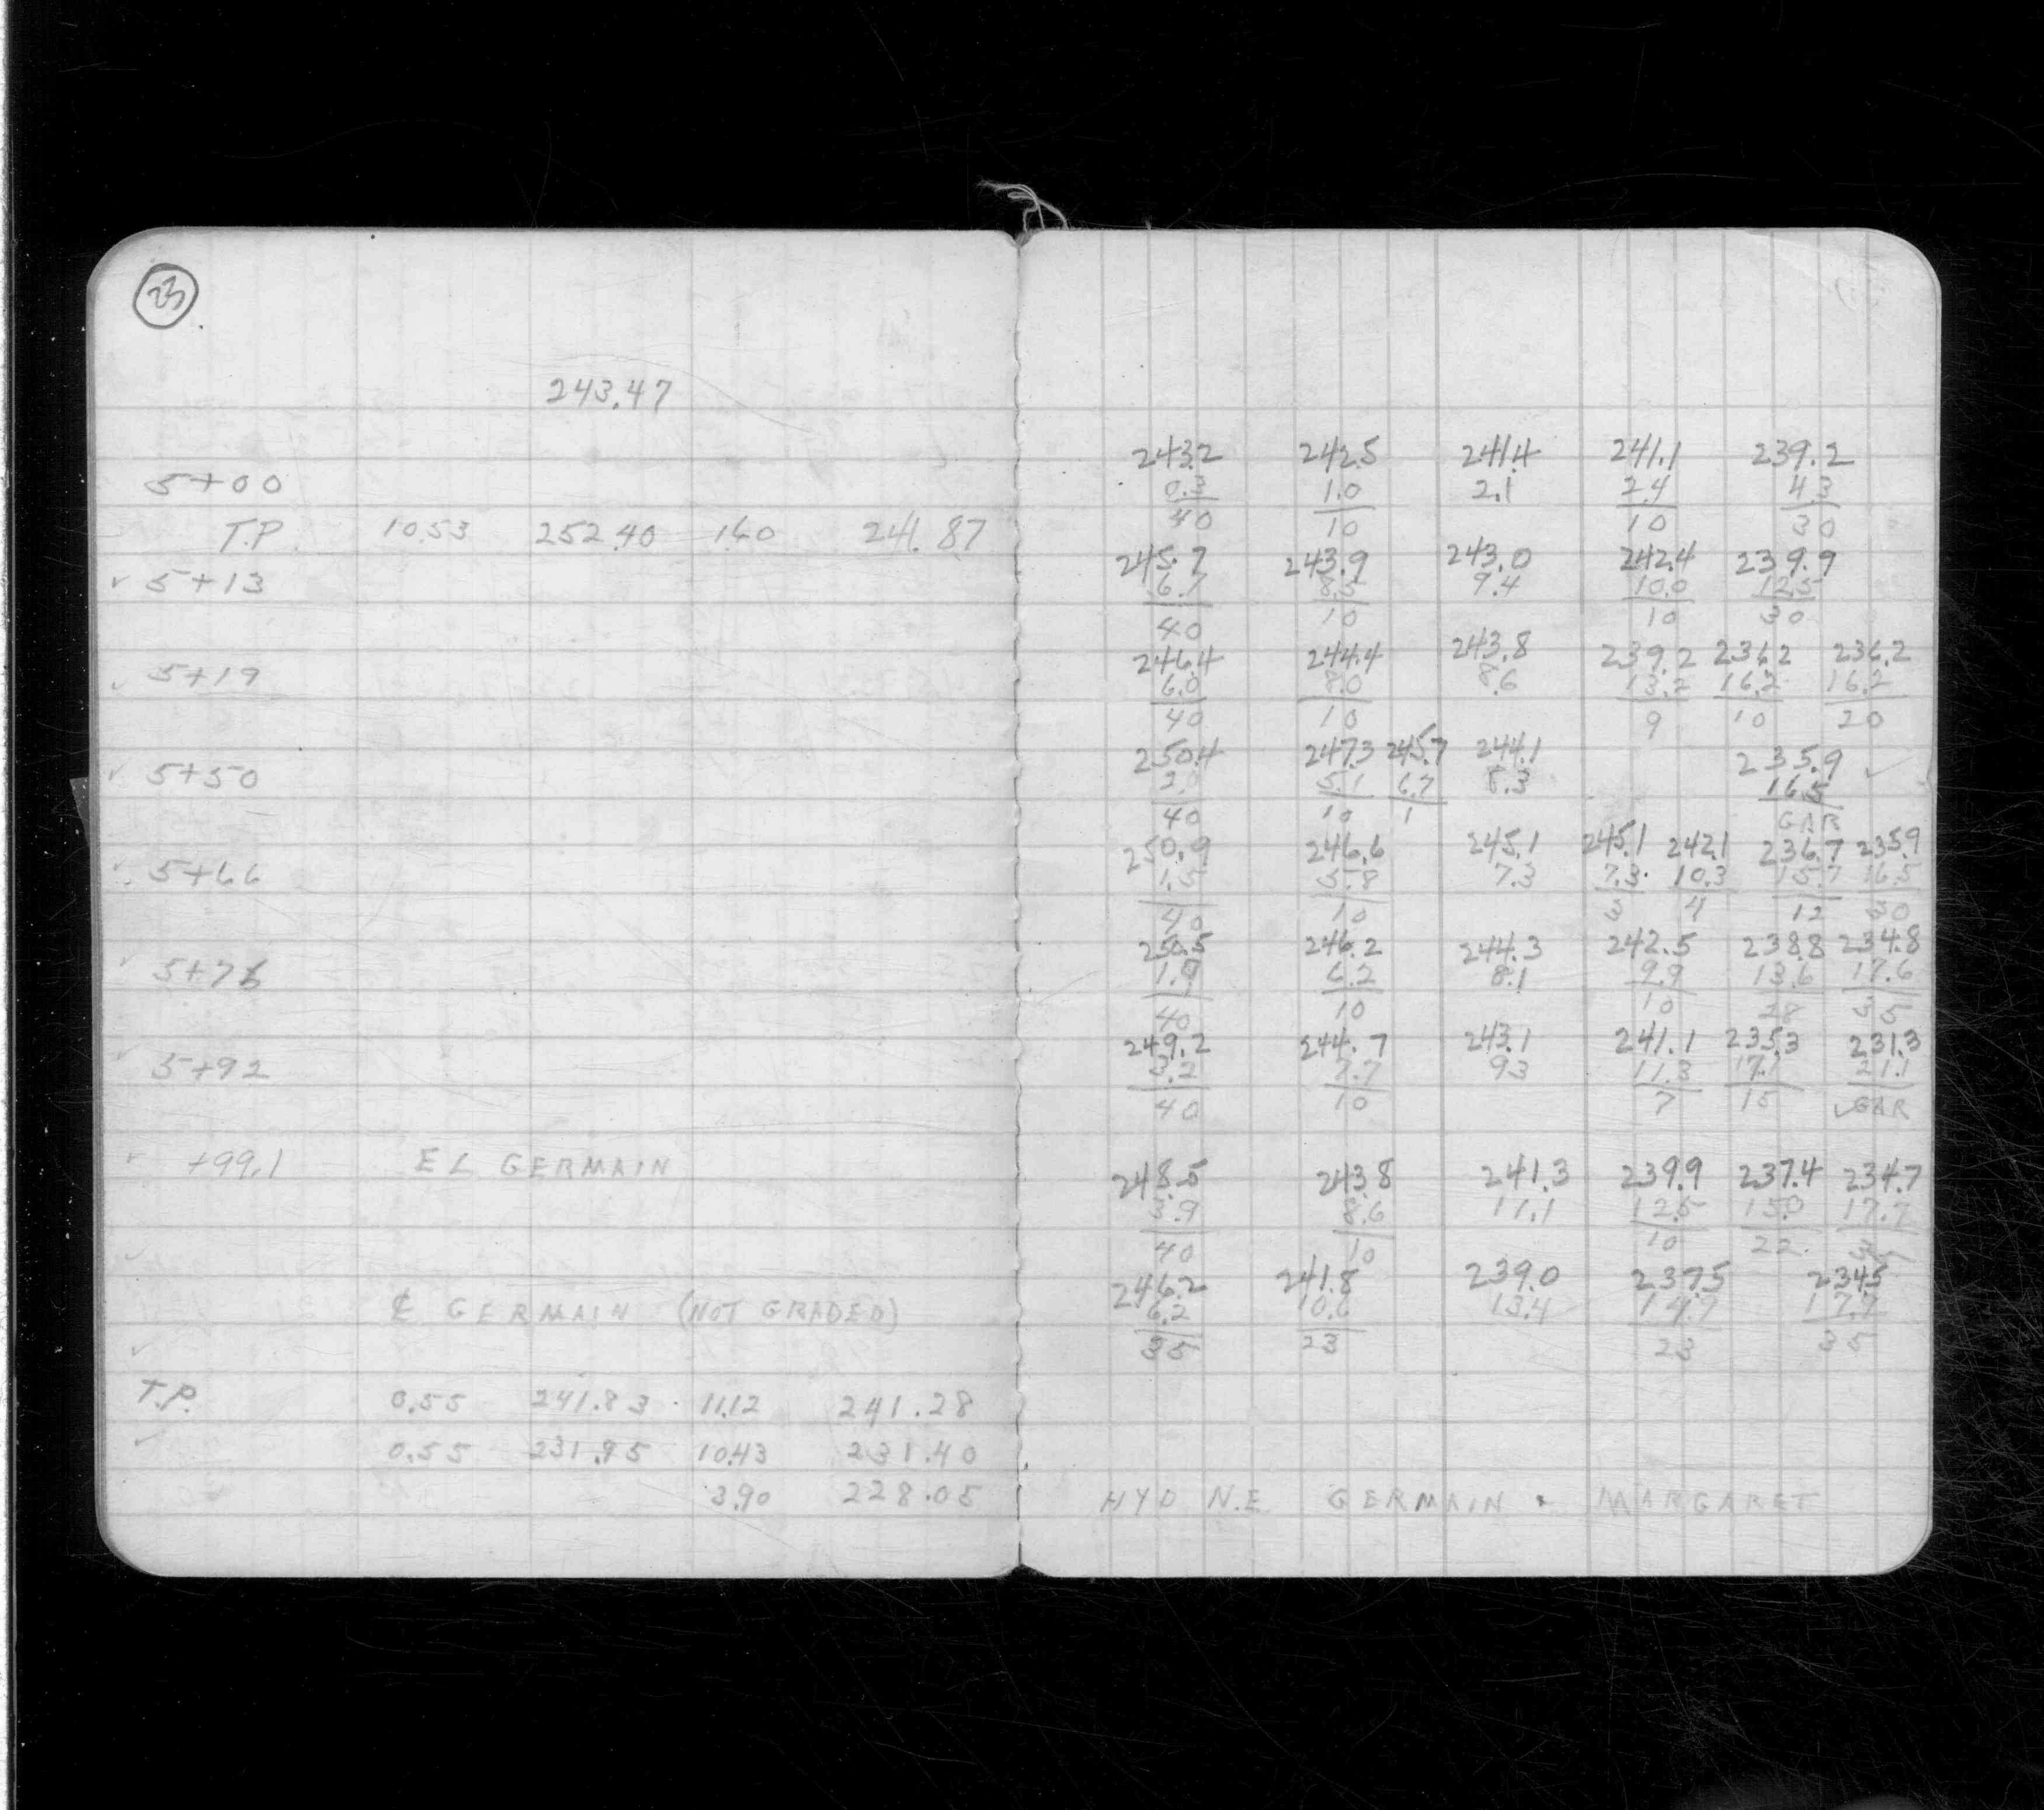 23
243.47
243.2 242.5 241.4 241.1 239.2
5+00 0.3 1.0 2.1 2.4 4.3
40 10 10 30
T.P. 10.53 252.40 1.60 241.87
245.7 243.9 243.0 242.4 239.9
5+13 6.7 8.5 9.4 10.0 12.5
40 10 10 30
246.4 244.4 243.8 239.2 236.2 236.2
5+19 6.0 8.0 8.6 13.2 16.2 16.2
40 10 9 10 20
250.4 247.3 245.7 244.1 235.9
5+50 2.0 5.1 6.7 8.3 16.5
40 10 1 GAR
250.9 246.6 245.1 245.1 242.1 236.7 235.9
5+66 1.5 5.8 7.3 7.3 10.3 15.7 16.5
40 10 3 4 12 30
250.5 246.2 244.3 242.5 238.8 234.8
5+76 1.9 6.2 8.1 9.9 13.6 17.6
40 10 10 28 35
249.2 244.7 243.1 241.1 235.3 231.3
5+92 3.2 7.7 9.3 11.3 17.1 21.1
40 10 7 15 GAR
+99.1 EL GERMAIN
248.5 243.8 241.3 239.9 237.4 234.7
3.9 8.6 11.1 12.5 15.0 17.7
40 10 10 22
246.2 241.8 239.0 237.5 234.5
₵ GERMAIN (NOT GRADED) 6.2 10.6 13.4 14.9 17.9
35 23 23 35
T.P. 0.55 241.83 11.12 241.28
0.55 231.95 10.43 231.40
3.90 228.05 HYD N.E. GERMAIN & MARGARET